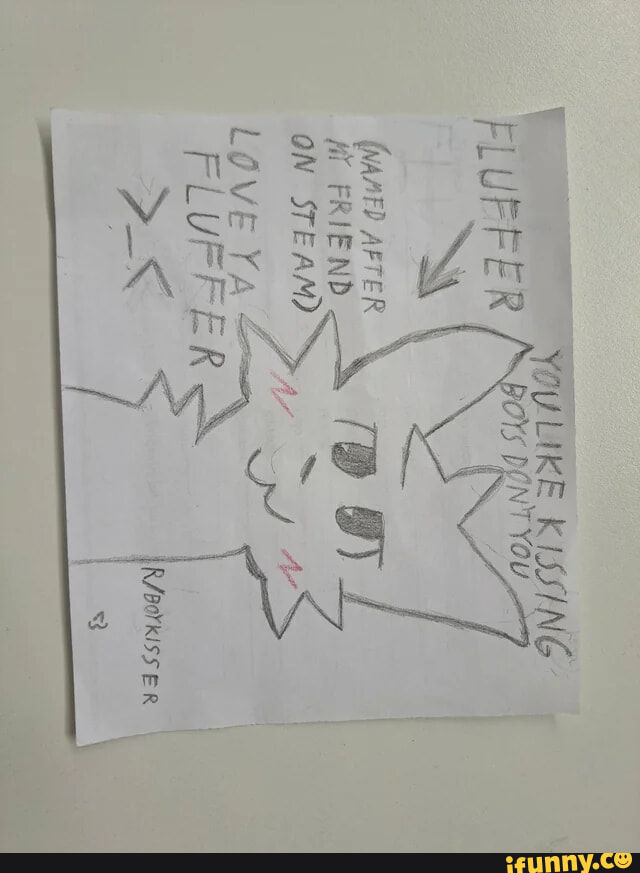 YOU LIKE KISSING
BOYS DON'T YOU
FLUFFER
(NAMED AFTER
MY FRIEND
ON STEAM)
LOVE YA
FLUFFER
>_<
R/BOYKISSER
<3
ifunny.co